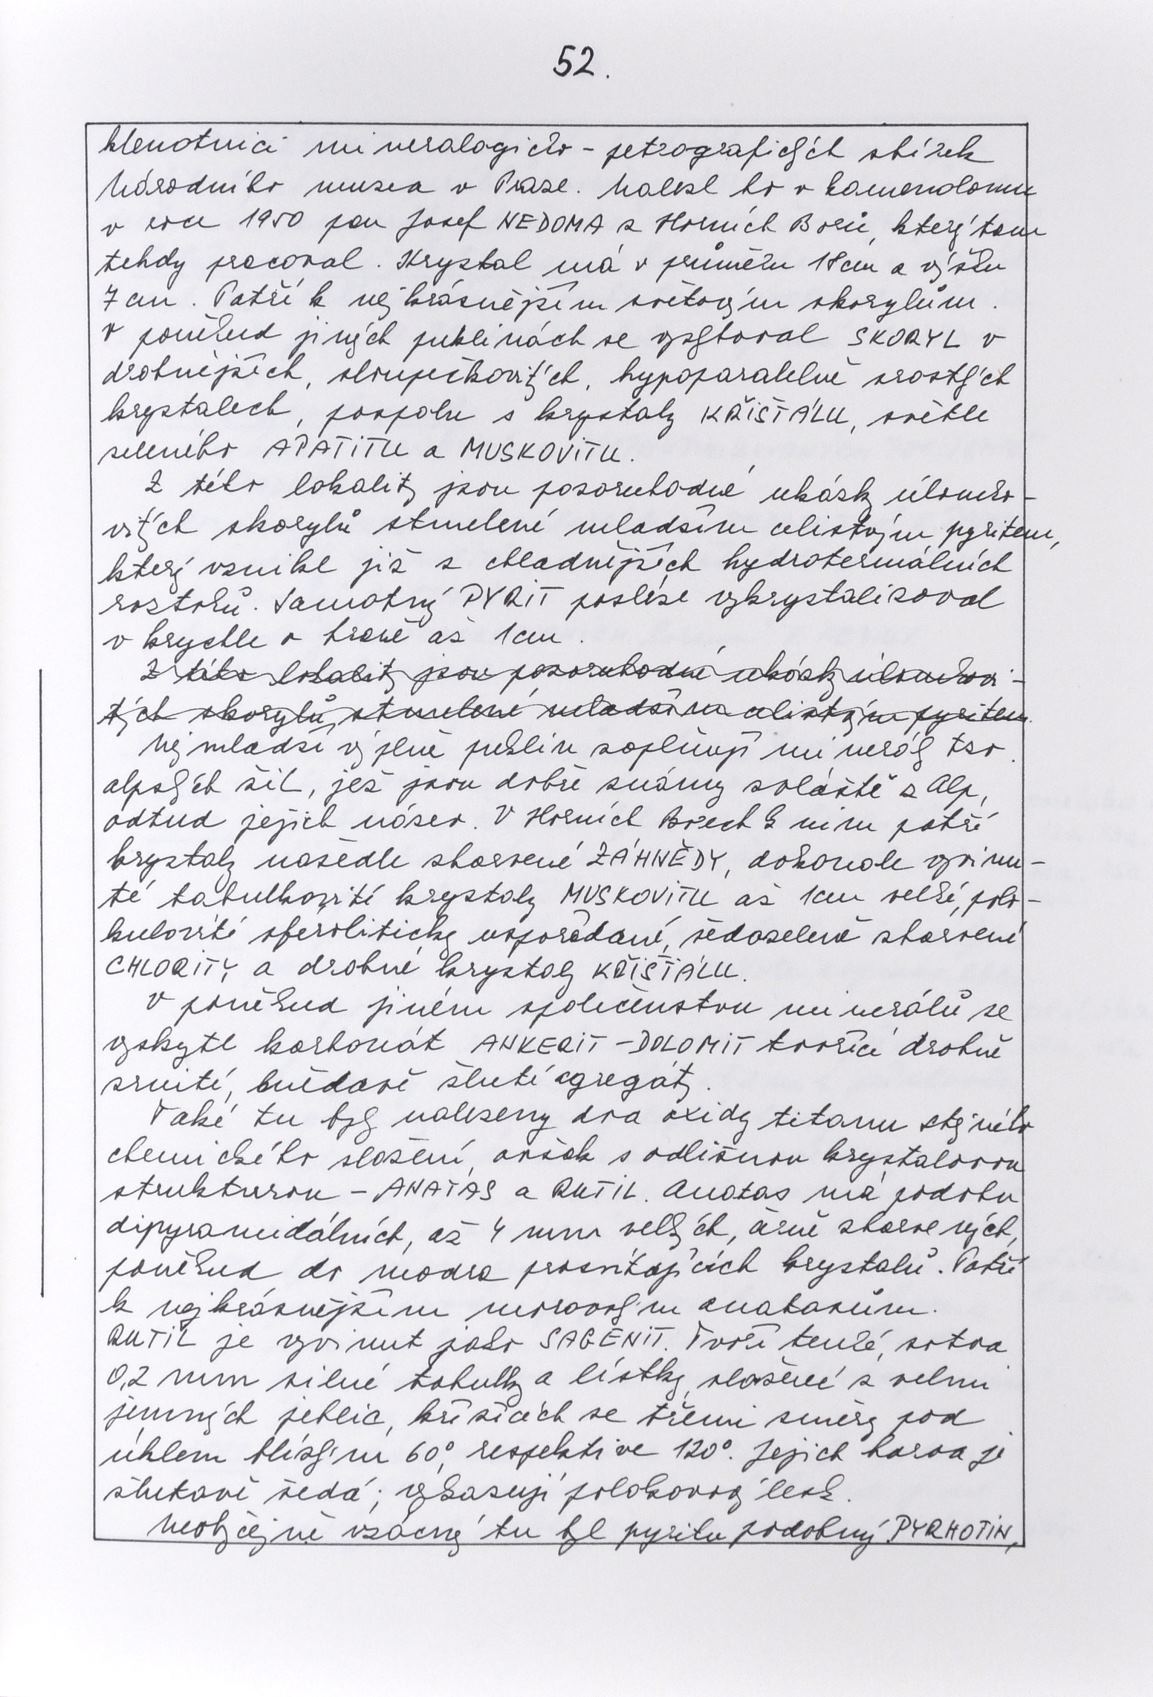 52.
klenotnici mineralogicko - petrografických sbírek
Národního musea v Praze. Nalezl ho v kamenolomu
v roce 1950 pan Josef NEDOMA z Horních Borů, který tam
tehdy pracoval. Krystal má v průměru 18 cm a výšku
7 cm. Patří k nejkrásnějším světovým skorylům.
V poněkud jiných puklinách se vyskytoval SKORYL v
drobnějších, sloupečkovitých, hypoparalelně srostlých
krystalech, pospolu s krystaly KŘIŠŤÁLU, světle
zeleného APATITU a MUSKOVITU.
Z této lokality jsou pozoruhodné ukázky úlomko-
vitých skorylů stmelené mladším celistvým pyritem,
který vznikl již z chladnějších hydrotermálních
roztoků. Samotný PYRIT posléze vykrystalizoval
v krychle o hraně až 1cm.
Z této lokality jsou pozoruhodné ukázky úlomkovi-
tých skorylů, stmelené mladším celistvým pyritem.
Nejmladší výplně puklin zaplňují minerály tzv.
alpských žil, jež jsou dobře známy zvláště z Alp,
odtud jejich název. V Horních Borech k nim patří
krystaly nahnědle zbarvené ZÁHNĚDY, dokonale vyvinu-
té tabulkovité krystaly MUSKOVITU až 1cm velké, polo-
kulovité sferoliticky uspořádané, šedozeleně zbarvené
CHLORITY a drobné krystaly KŘIŠŤÁLU.
V poněkud jiném společenstvu minerálů se
vyskytl karbonát ANKERIT - DOLOMIT tvořící drobně
zrnité, hnědavě žluté agregáty.
Také tu byly nalezeny dva oxidy titanu stejného
chemického složení, avšak s odlišnou krystalovou
strukturou - ANATAS a RUTIL. Anatas má podobu
dipyramidálních, až 4 mm velkých, černě zbarvených,
poněkud do modra prosvítajících krystalů. Patří
k nejkrásnějším moravským anatasům.
RUTIL je vyvinut jako SAGENIT. Tvoří tenké, sotva
0,2 mm silné tabulky a lístky, složené z velmi
jemných jehlic, křížících se třemi směry pod
úhlem blízkým 60°, respektive 120°. Jejich barva je
žlutavě šedá; vykazují polokovový lesk.
Neobyčejně vzácný tu byl pyritu podobný PYRHOTIN,